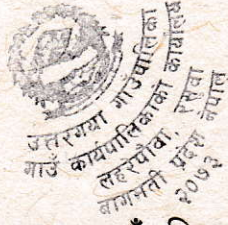 उत्तरगया गाउँपालिका
गाउँ कार्यपालिकाको कार्यालय
लहरेपौवा, रसुवा
बागमती प्रदेश नेपाल
२०७३